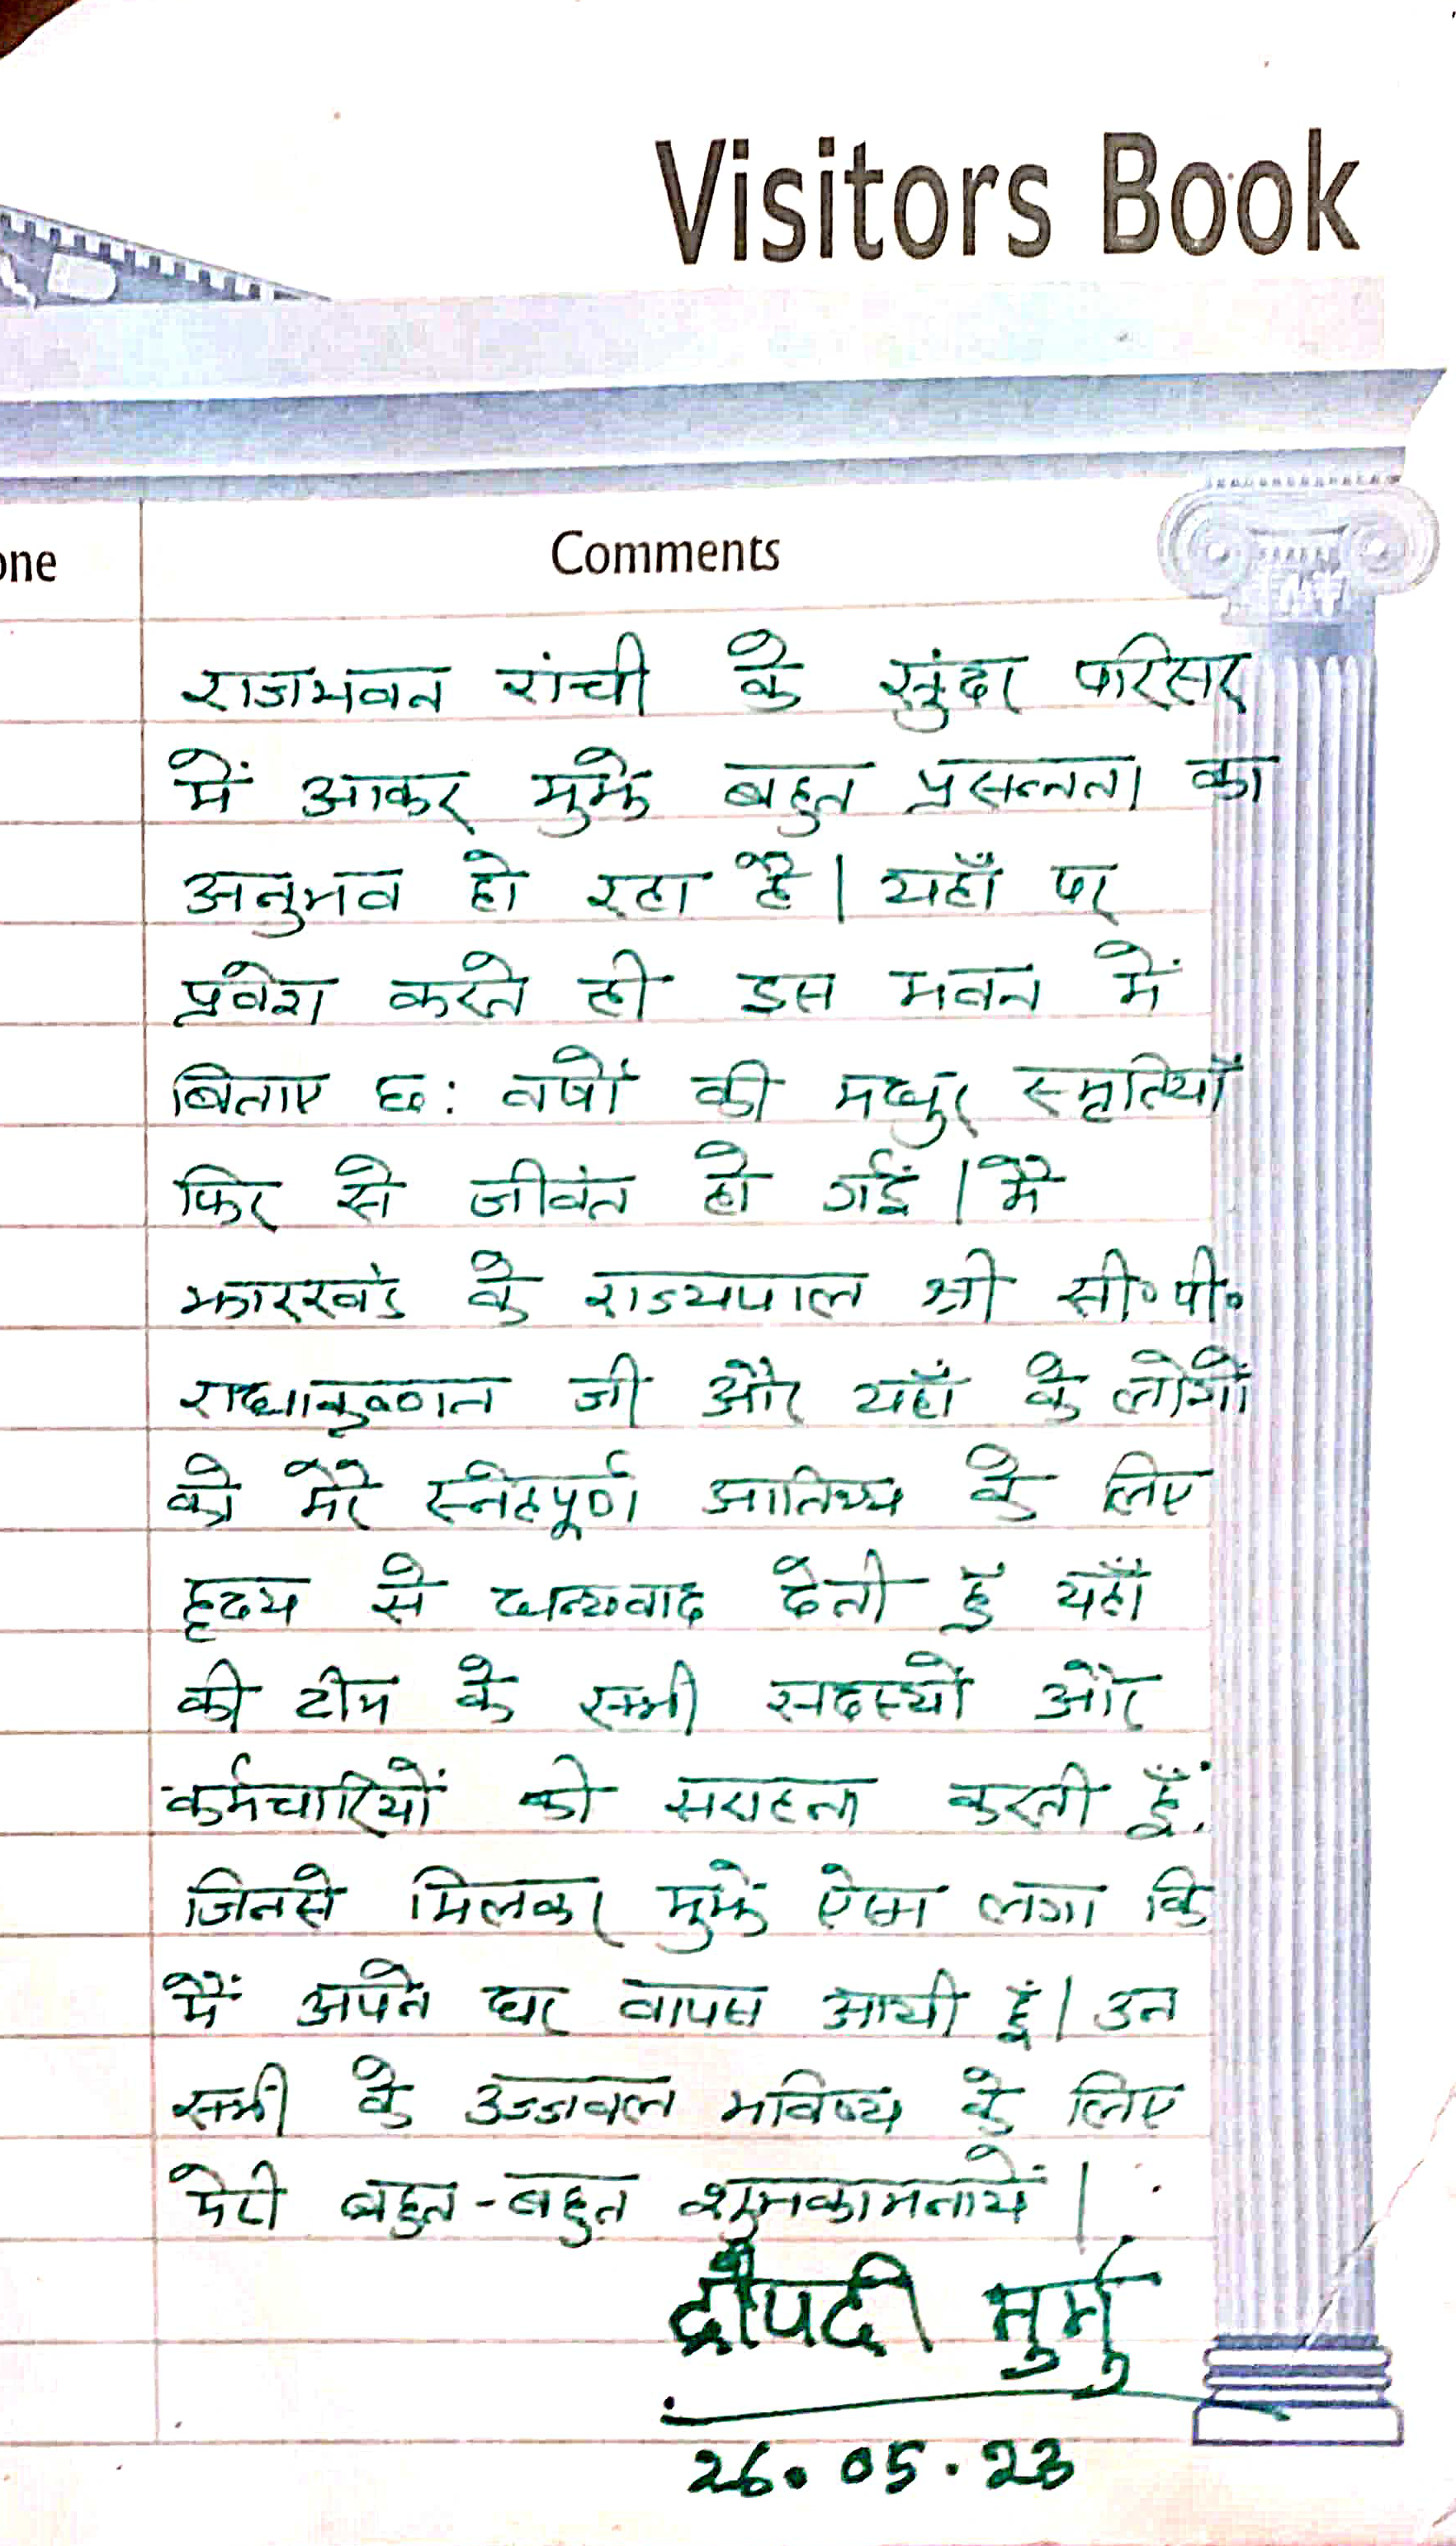 Visitors Book
one
Comments
राजभवन रांची के सुंदर परिसर
में आकर मुझे बहुत प्रसन्नता का
अनुभव हो रहा है। यहाँ पर
प्रवेश करते ही इस भवन में
बिताए छः वर्षों की मधुर स्मृतियाँ
फिर से जीवंत हो गईं। मैं
झारखंड के राज्यपाल श्री सी॰ पी॰
राधाकृष्णन जी और यहाँ के लोगों
को मेरे स्नेहपूर्ण आतिथ्य के लिए
हृदय से धन्यवाद देती हूँ यहाँ
की टीम के सभी सदस्यों और
कर्मचारियों की सराहना करती हूँ,
जिनसे मिलकर मुझे ऐसा लगा कि
मैं अपने घर वापस आयी हूं। उन
सभी के उज्जवल भविष्य के लिए
मेरी बहुत-बहुत शुभकामनायें।
द्रौपदी मुर्मु
26.05.23